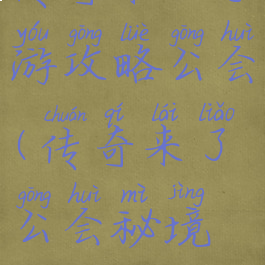 yóu gōng lüè gōng huì
游攻略公会
chuán qí lái liǎo
(传奇来了
gōng huì mì jìng
公会秘境